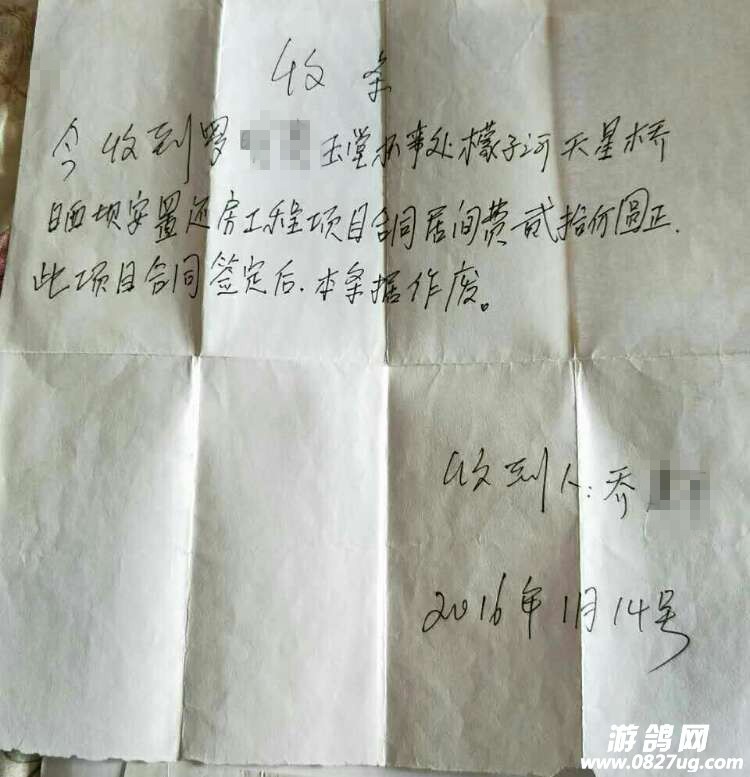 收条
今收到罗 玉堂办事处檬子河天星桥
晒坝安置还房工程项目合同居间费贰拾万圆正.
此项目合同签定后.本条据作废。
收到人:乔
2016年1月14号
游鸽网
www.0827ug.com